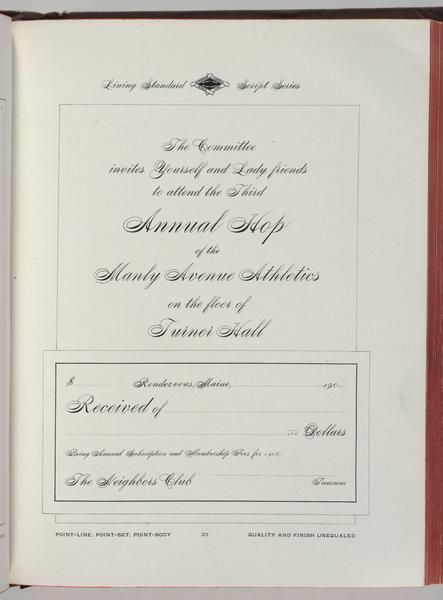 Lining Standard Script Series
The Committee
invites Yourself and Lady friends
to attend the Third
Annual Hop
of the
Manly Avenue Athletics
on the floor of
Turner Hall
$ Rendezvous, Maine, 190
Received of
100 Dollars
Being Annual Subscription and Membership Fees for 1908.
The Neighbors Club Treasurer
POINT-LINE, POINT-SET, POINT-BODY QUALITY AND FINISH UNEQUALED